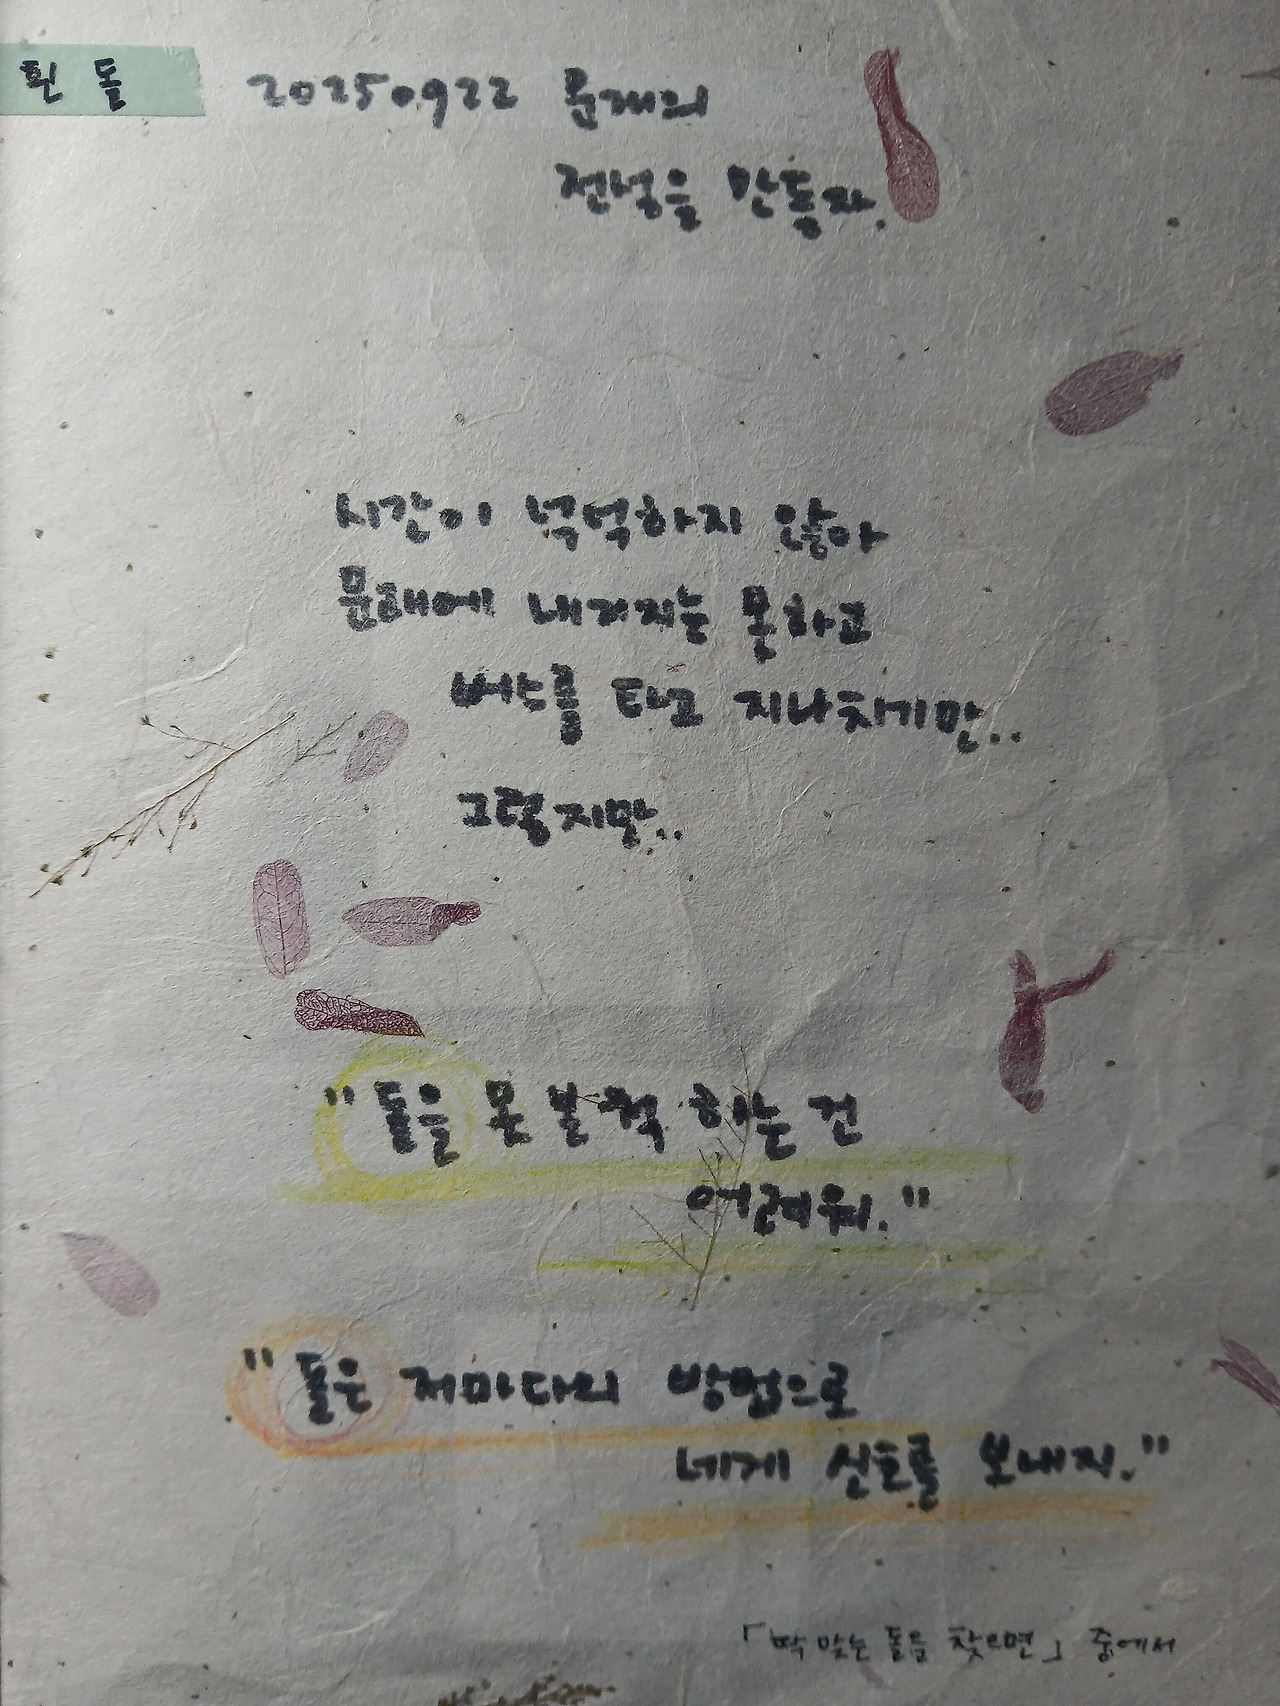 흰 돌
20250922 문래의
전설을 만들자.
시간이 넉넉하지 않아
문래에 내려지는 못하고
버스를 타고 지나치기만..
그렇지만..
"돌을 못 본 척 하는 건
어려워."
"돌은 저마다의 방법으로
네게 신호를 보내지."
「딱 맞는 돌을 찾으면」 중에서